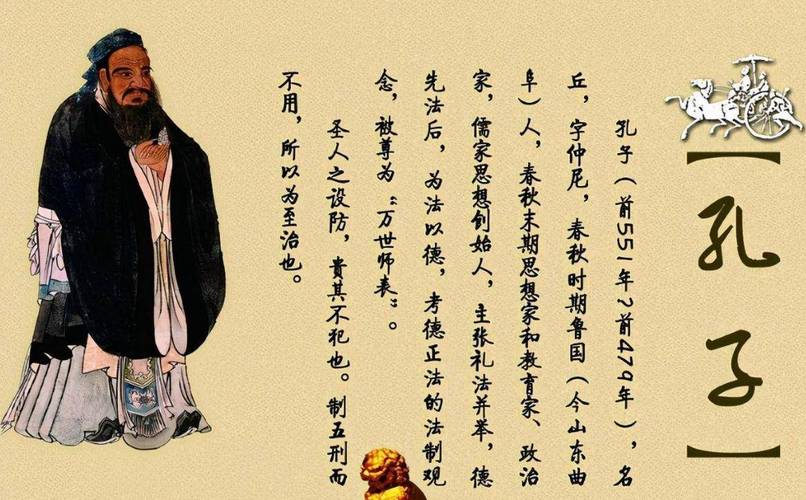 【孔子】
孔子（前551年？前479年），名
丘，字仲尼，春秋时期鲁国（今山东曲
阜）人，春秋末期思想家和教育家、政治
家，儒家思想创始人，主张礼法并举，德
先法后，为法以德，考德正法的法制观
念，被尊为“万世师表”。
圣人之设防，贵其不犯也。制五刑而
不用，所以为至治也。